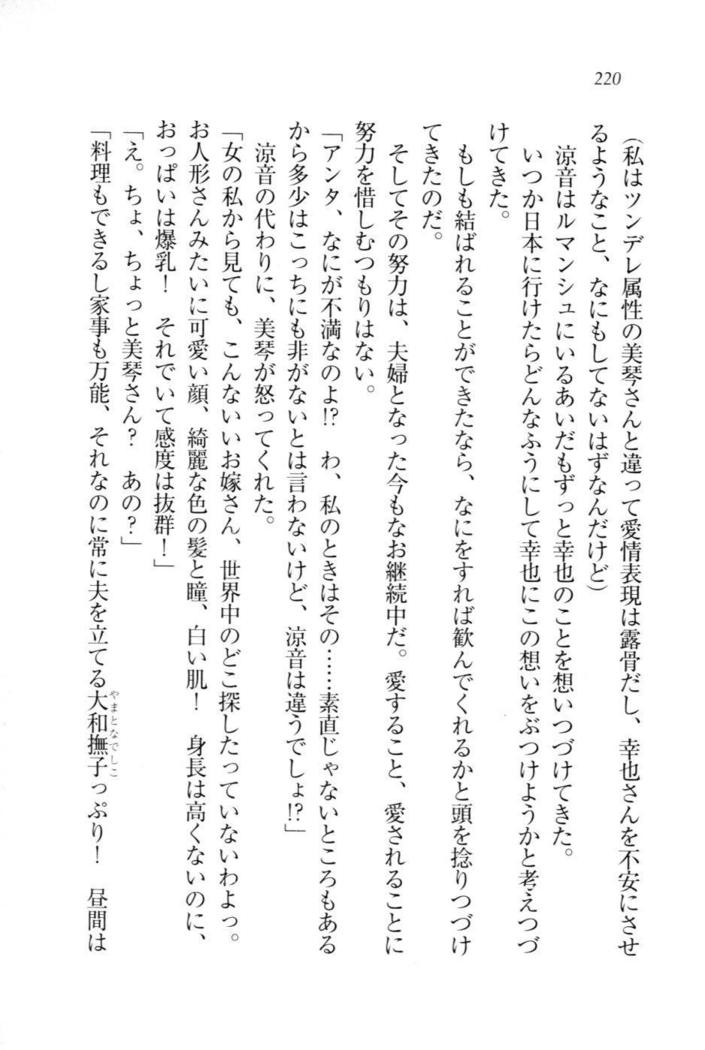 220
(私はツンデレ属性の美琴さんと違って愛情表現は露骨だし、幸也さんを不安にさせ
るようなこと、なにもしてないはずなんだけど)
涼音はルマンシュにいるあいだもずっと幸也のことを想いつづけてきた。
いつか日本に行けたらどんなふうにして幸也にこの想いをぶつけようかと考えつづ
けてきた。
もしも結ばれることができたなら、なにをすれば歓んでくれるかと頭を捻りつづけ
てきたのだ。
そしてその努力は、夫婦となった今もなお継続中だ。愛すること、愛されることに
努力を惜しむつもりはない。
「アンタ、なにが不満なのよ!? わ、私のときはその……素直じゃないところもある
から多少はこっちにも非がないとは言わないけど、涼音は違うでしょ!?」
涼音の代わりに、美琴が怒ってくれた。
「女の私から見ても、こんないいお嫁さん、世界中のどこ探したっていないわよっ。
お人形さんみたいに可愛い顔、綺麗な色の髪と瞳、白い肌! 身長は高くないのに、
おっぱいは爆乳! それでいて感度は抜群!」
「え。ちょ、ちょっと美琴さん? あの?」
「料理もできるし家事も万能、それなのに常に夫を立てる大和撫子っぷり! 昼間は
やまとなでしこ